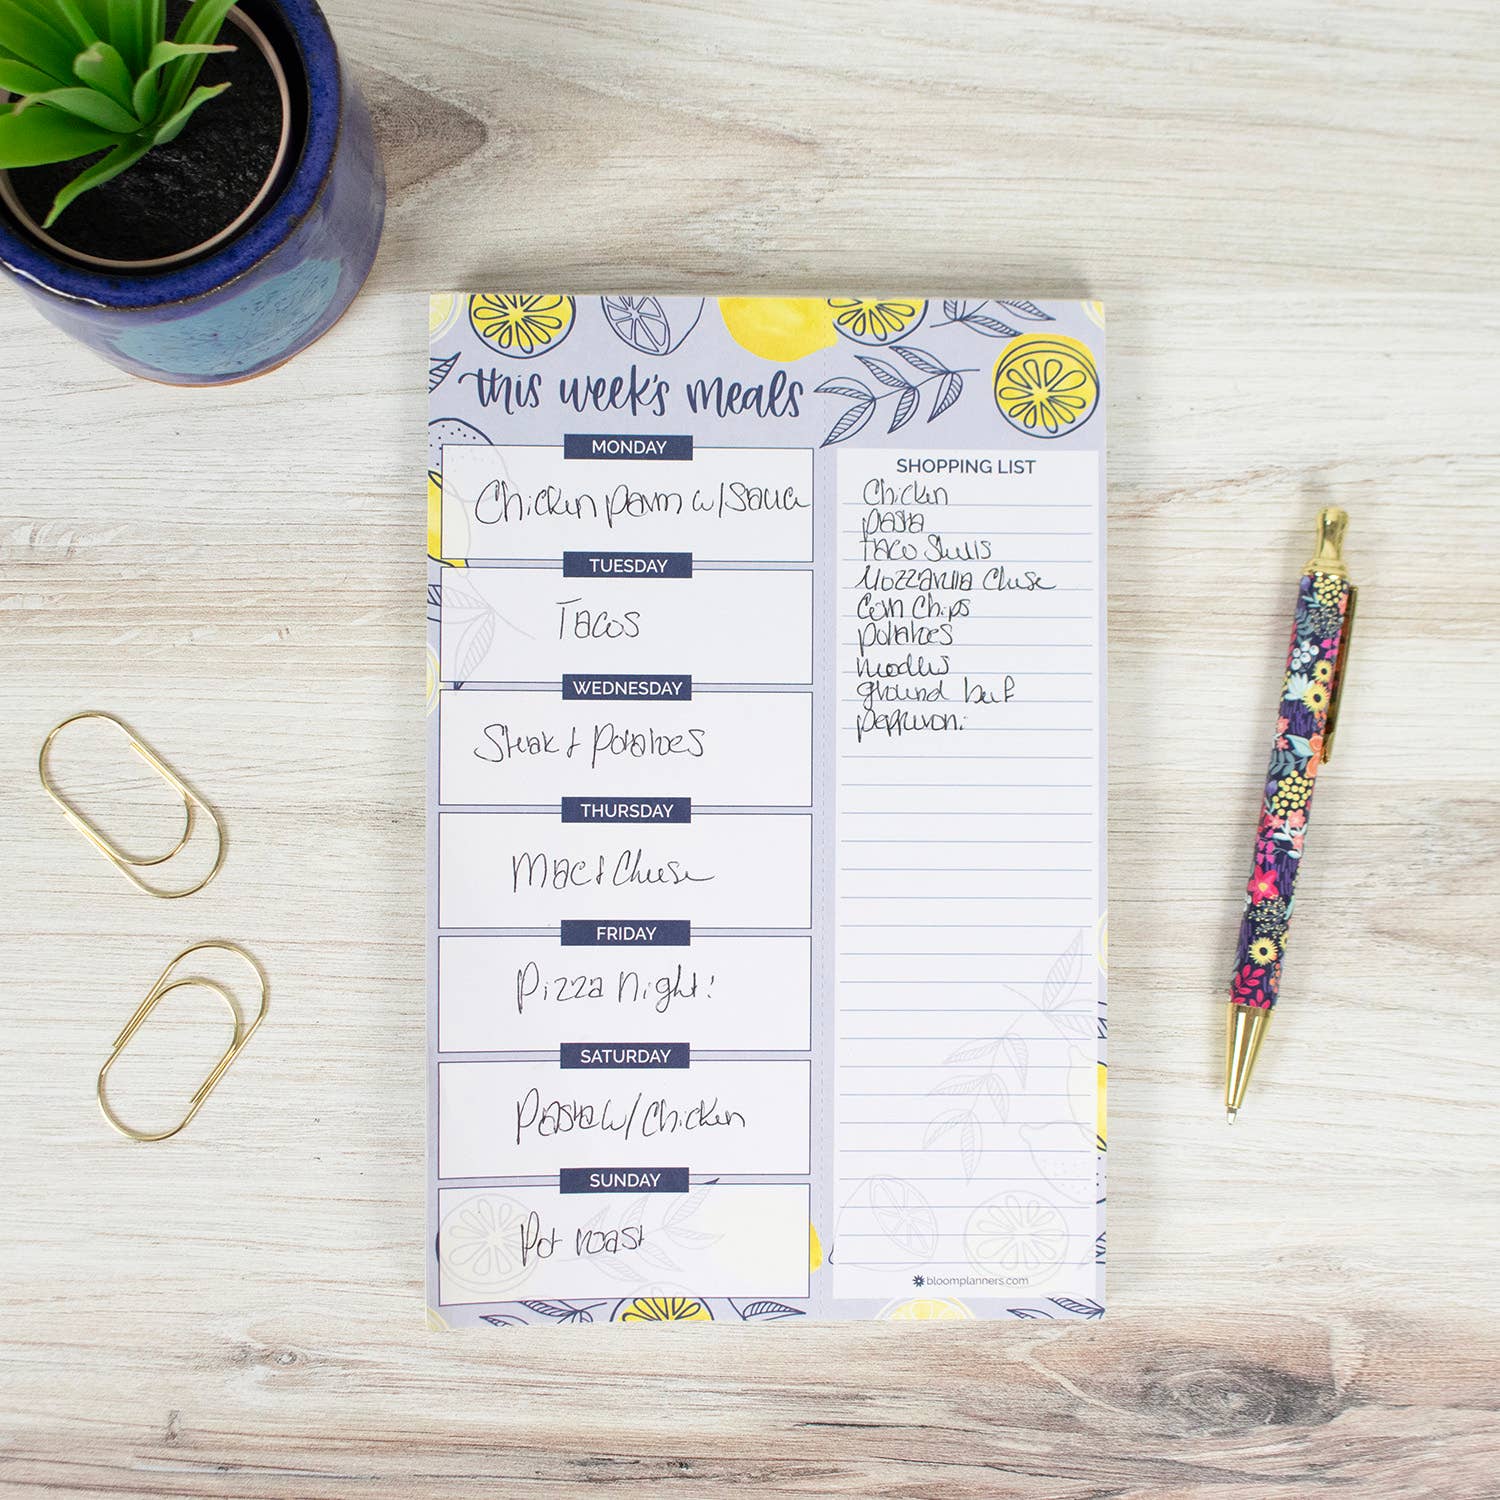 this week's meals
MONDAY
Chicken parm w/ Sauce
TUESDAY
Tacos
WEDNESDAY
Steak & Potatoes
THURSDAY
Mac & Cheese
FRIDAY
Pizza night!
SATURDAY
Pasta w/ Chicken
SUNDAY
Pot roast
SHOPPING LIST
Chicken
pasta
Taco Shells
Mozzarella Cheese
Corn Chips
potatoes
noodles
ground beef
pepperoni
bloomplanners.com